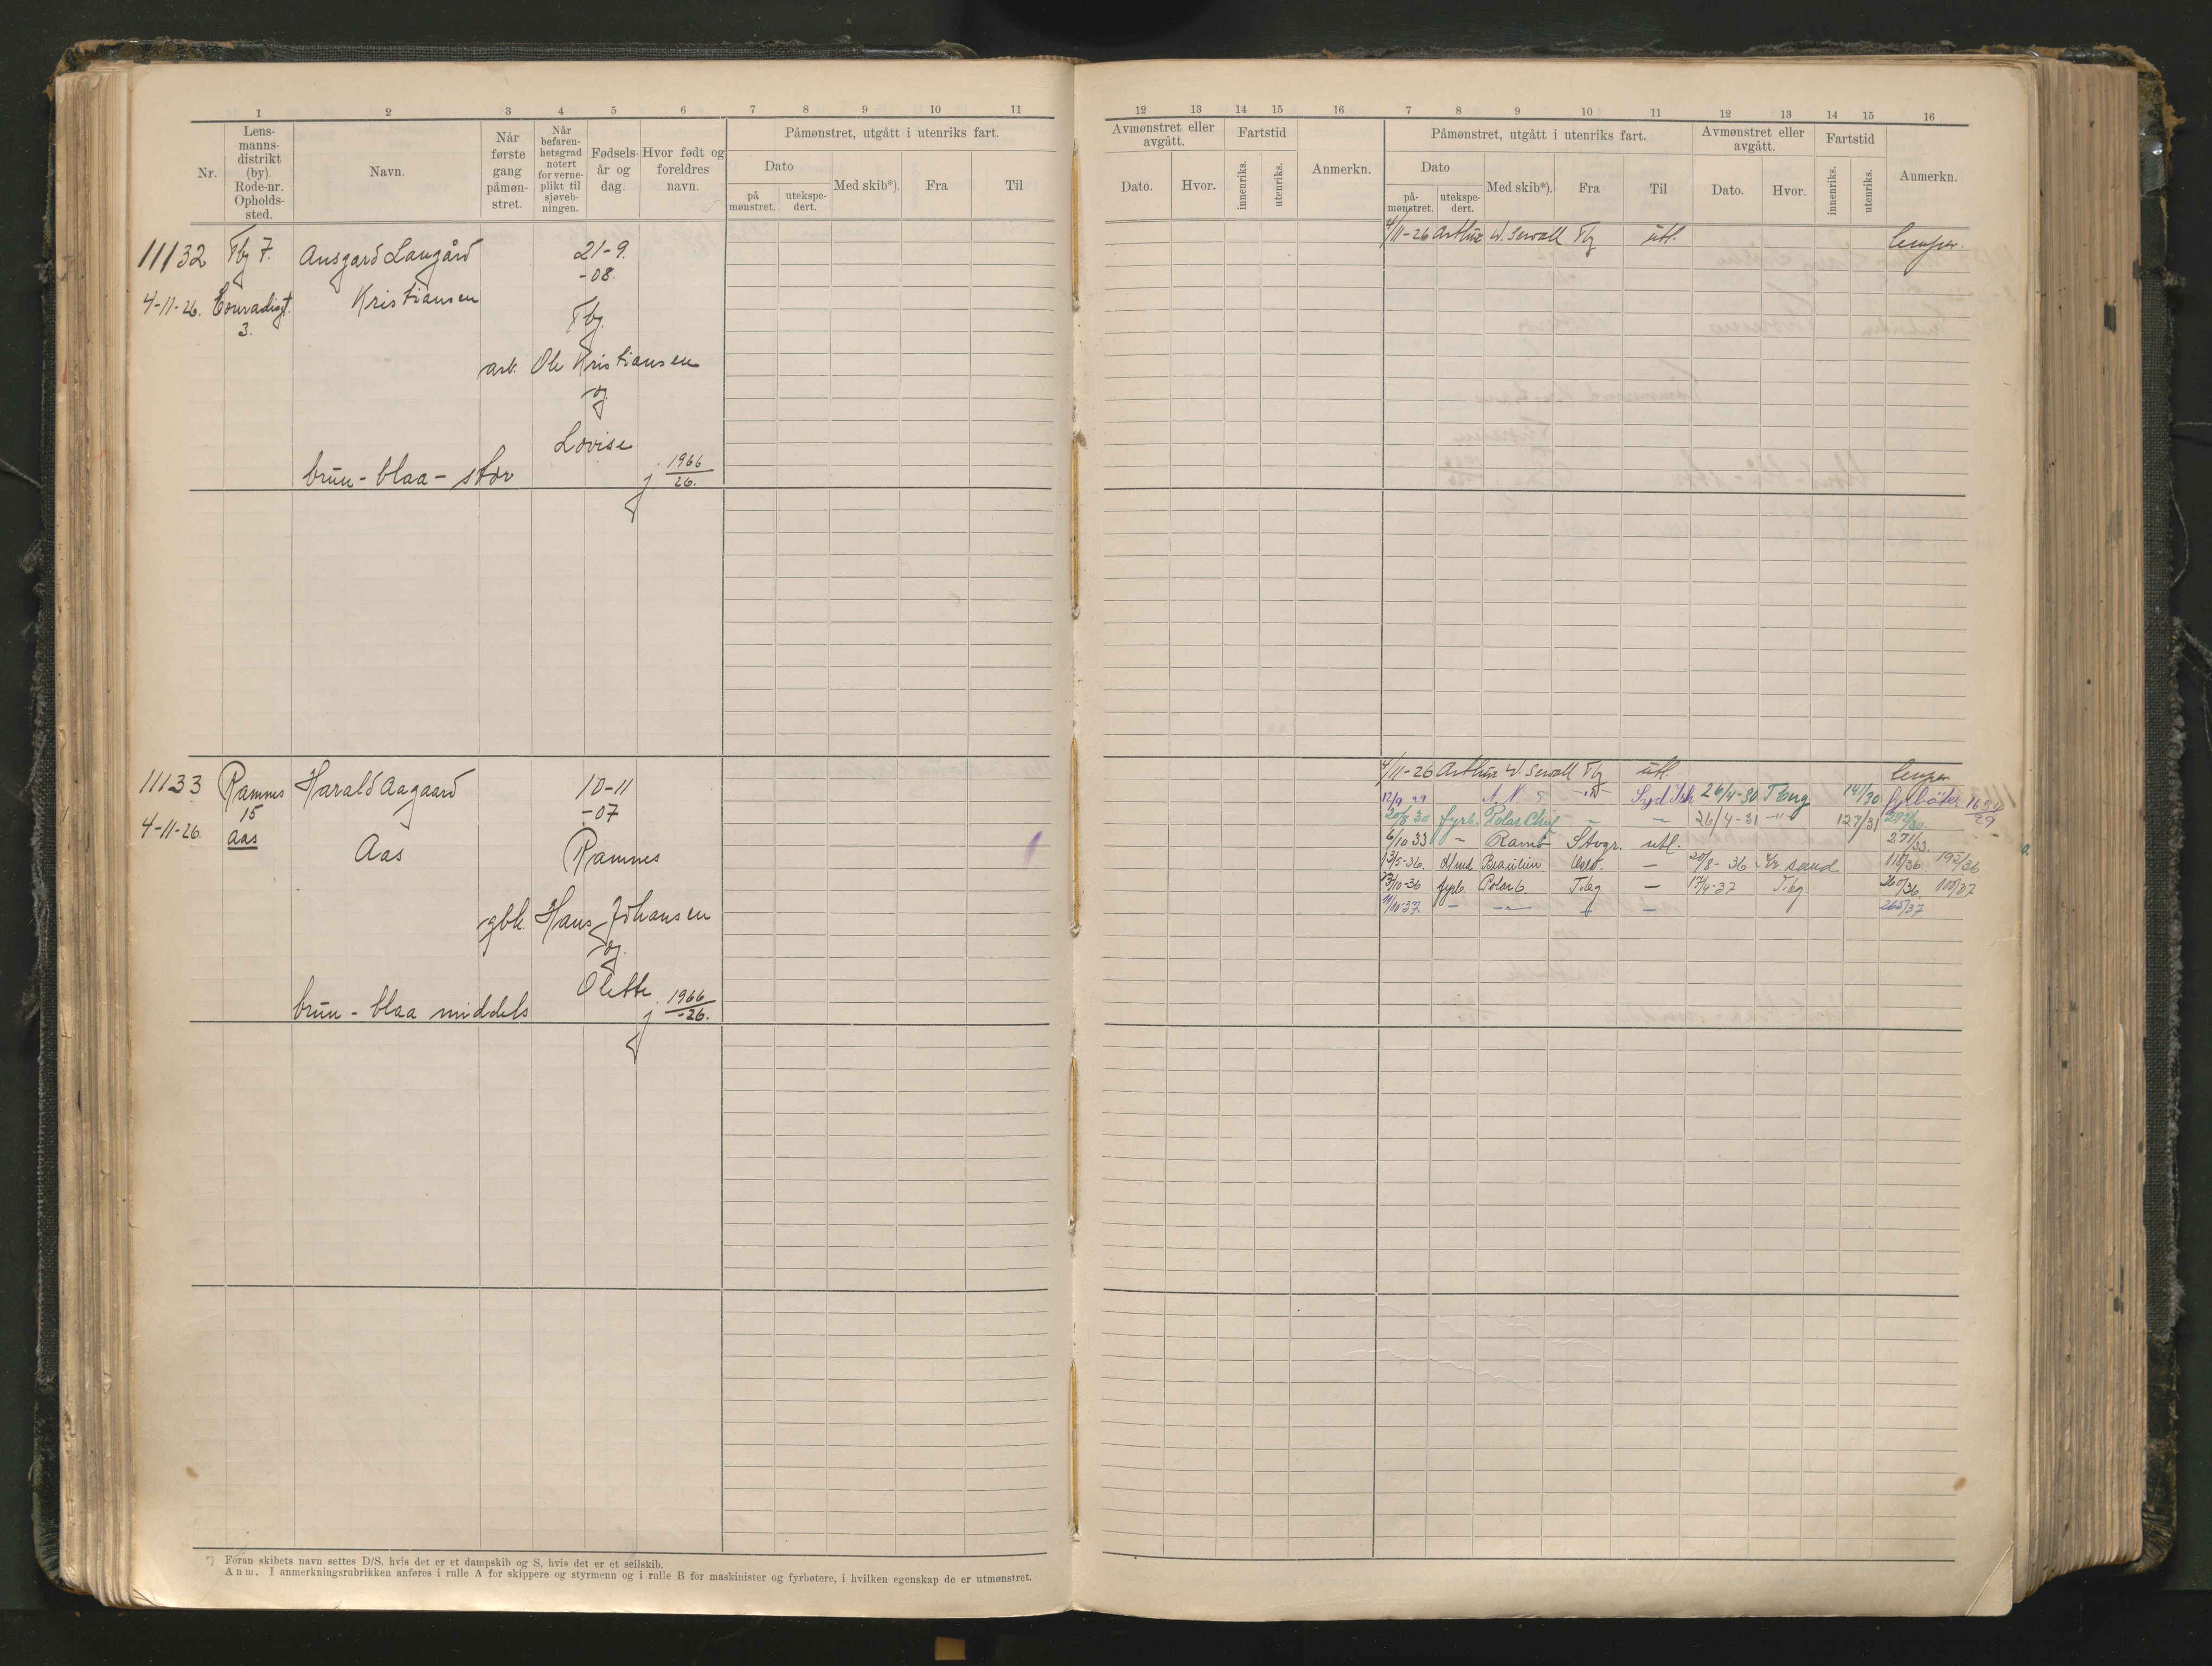 1 2 3 4 5 6 7 8 9 10 11
Nr.
Lens-
manns-
distrikt
(by)
Rode-nr.
Opholds-
sted.
Navn.
Når
første
gang
påmøn-
stret.
Når
befaren-
hetsgrad
notert
for verne-
plikt til
sjøveb-
ningen.
Fødsels-
år og
dag.
Hvor født og
foreldres
navn.
Påmønstret, utgått i utenriks fart.
Dato
på
mønstret.
utekspe-
dert.
Med skib*).
Fra
Til
11132 Tbg 7. Ansgard Laugård 21-9.
-08.
4-11-26. Conradisgt. Kristiansen
3. Tbg.
arb. Ole Kristiansen
og
Lovise
brun - blaa - stor j. 1966
26.
11133 Ramnes Harald Aagaard 10-11
15 -07
4-11-26. Aas Aas Ramnes
gbk. Hans Johansen
og
Olette
brun - blaa middels j. 1966
-26.
*) Foran skibets navn settes D/S, hvis det er et dampskib og S, hvis det er et seilskib.
Anm. I anmerkningsrubrikken anføres i rulle A for skippere og styrmenn og i rulle B for maskinister og fyrbøtere, i hvilken egenskap de er utmønstret.
12 13 14 15 16 7 8 9 10 11 12 13 14 15 16
Avmønstret eller
avgått.
Dato.
Hvor.
Fartstid
innenriks.
utenriks.
Anmerkn.
Påmønstret, utgått i utenriks fart.
Dato
på-
mønstret.
utekspe-
dert.
Med skib*).
Fra
Til
Avmønstret eller
avgått.
Dato.
Hvor.
Fartstid
innenriks.
utenriks.
Anmerkn.
4/11-26 Arthur W. Sewall Tbg utl. lemper.
4/11-26 Arthur W. Sewall Tbg utl. lemper
12/9 29 A. N. 5 -"- Syd Ish 26/4-30 Tbrg 141/30 fyrbøter 1630/29
20/8 30 fyrb. Polar Chief " " 26/4-31 -"- 127/31 292/30.
6/10 33 " Ramø Stvgr. utl. 271/33.
13/5-36. Brasilien Oslo. — 20/8-36 sand 118/36 192/36
23/10-36 fyrb. Polar 6. T.bg — 17/4-37 T.bg. 260/36. 108/37
11/10-37. — — — — 265/37